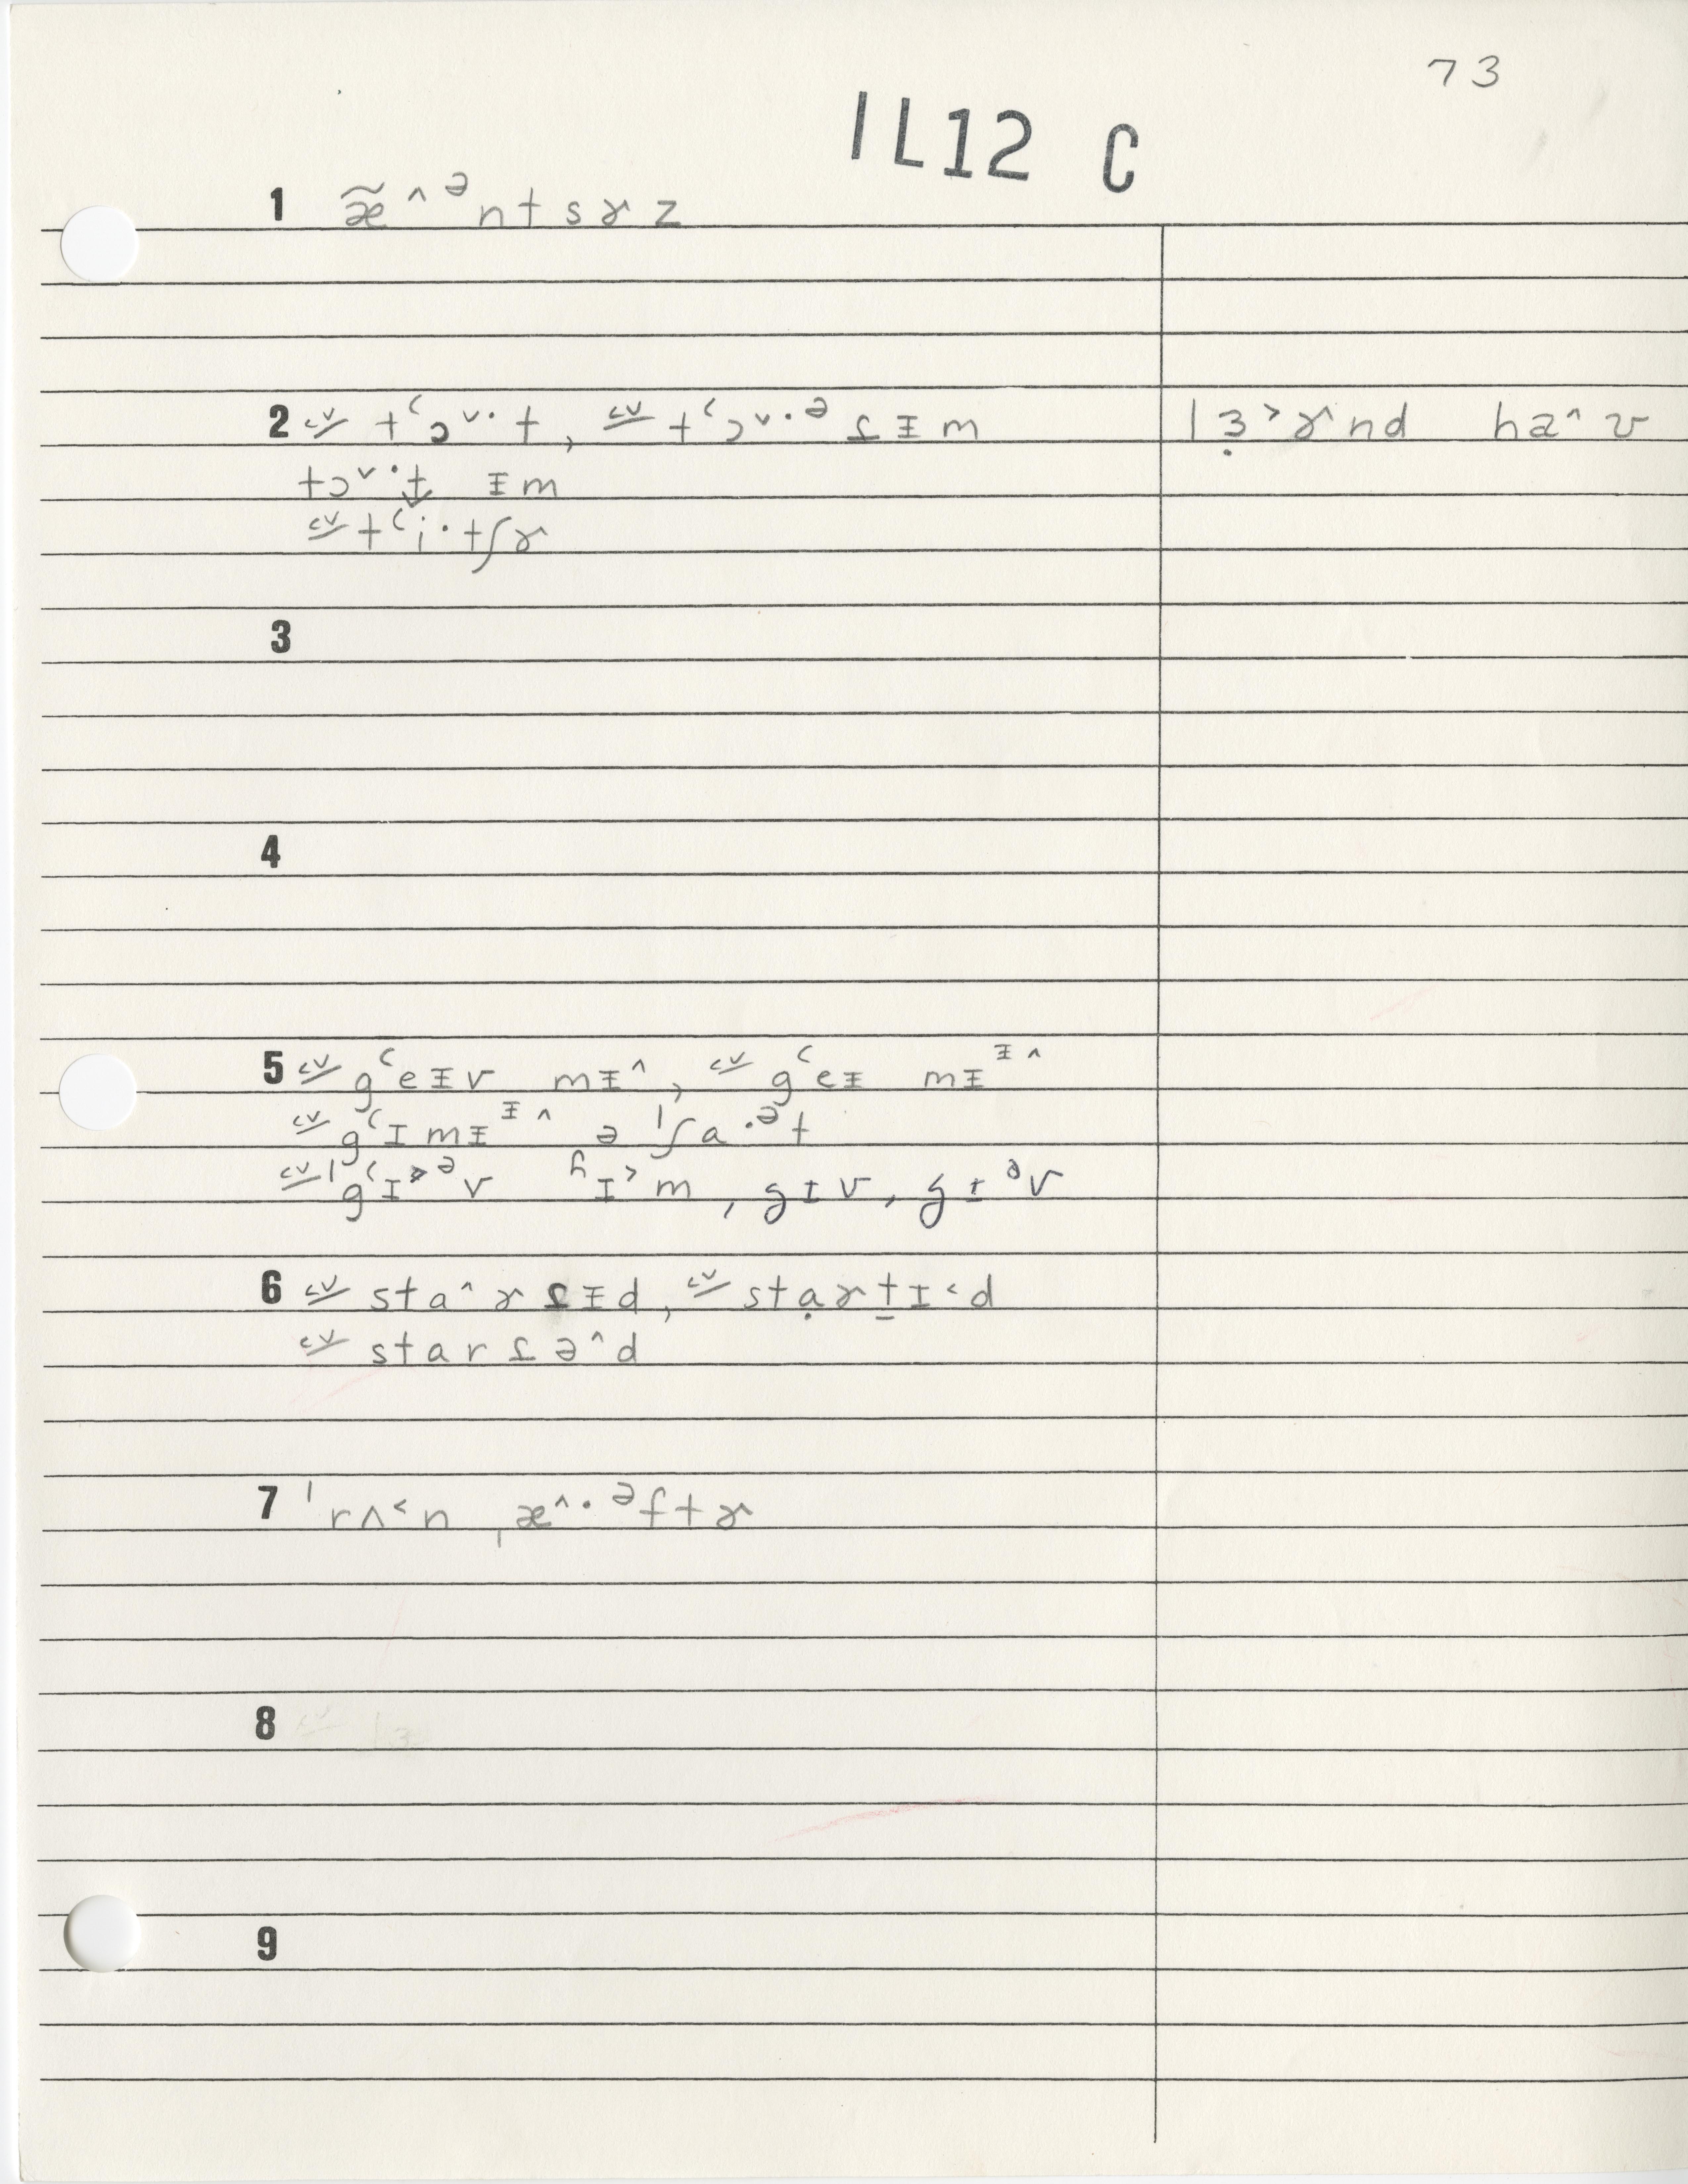 73
IL12 C
1 æ̃^ᵊntsɚz
2 cv tʽɔᵛ·t, cv tʽɔᵛ·ᵊɾɪm lɜ̣˃ɚnd haˆʊ
tɔᵛ·t ɪm
cv tʽi·tʃɚ
3
4
5 cv gʽeɪv mɪ^, cv gʽeɪ mɪᶦ^
cv gʽɪmɪᶦ^ ə ˈʃa·ᵊt
cv ˈgʽɪ˃ᵊv ʱɪ˃m, gɪv, gɪᵊv
6 cv sta^ɚɾɪd, cv stạɚt̠ɪ˂d
cv starɾə^d
7 ˈrʌ˂n ˌæ^·ᵊftɚ
8
9